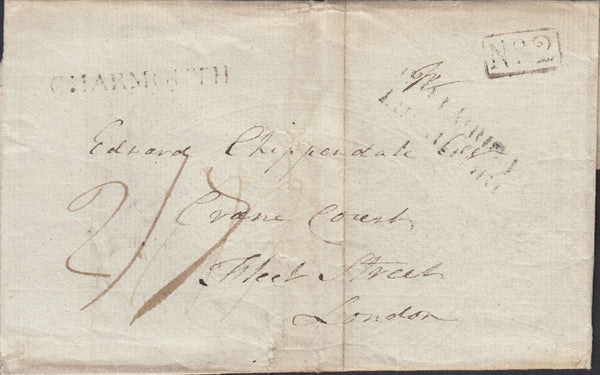 CHARMOUTH
No. 2
Edward Chippendale Esq
Crane Court,
Fleet Street
London